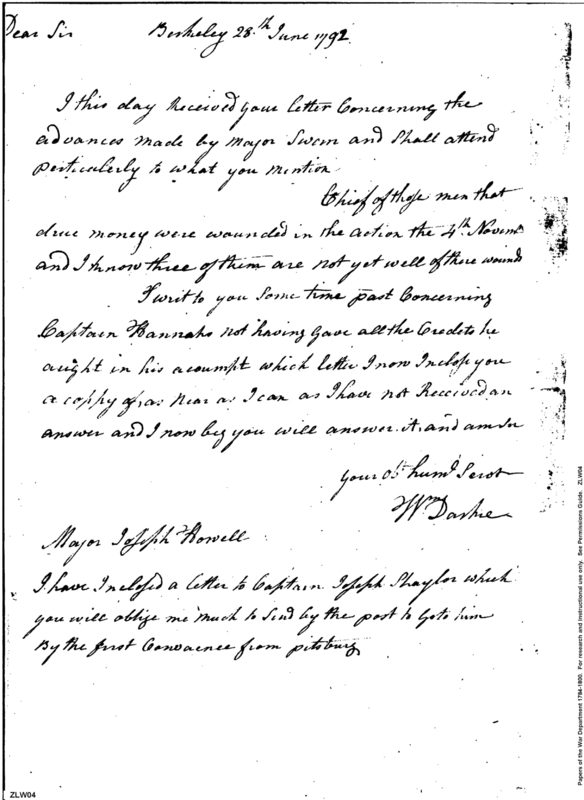 Dear Sir Berkeley 28th June 1792
I this day Received your letter Concerning the
advances made by Major Swan and Shall attend
perticulerly to what you mention
Chief of those men that
drue money were wounded in the action the 4th Novemr
and I know three of them are not yet well of there wounds
I writ to you Some time past Concerning
Captain Hannahs not having Gave all the Credets he
aught in his acoumpt which letter I now Inclose you
a coppy of as Near as I can as I have not Received an
answer and I now beg you will answer it and am Sir
your obt humb Servt
Wm Darke
Major Joseph Howell
I have Inclosed a letter to Captain Joseph Shaylor which
you will oblige me much to Send by the post to Go to him
By the first Convaence from pitsburg
ZLW04
Papers of the War Department 1784-1800. For research and instructional use only. See Permissions Guide. ZLW04